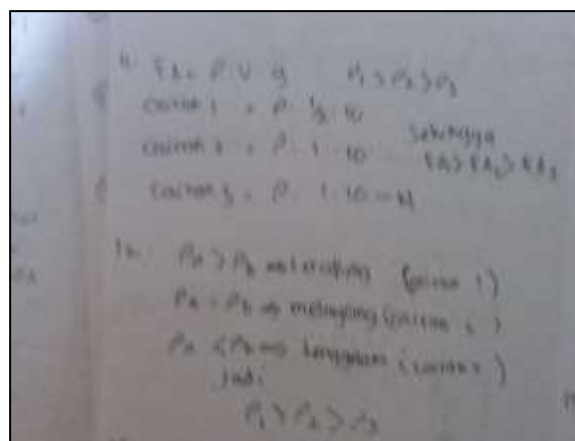 FA = ρ . V . g     ρ1 > ρ2 > ρ3
cairan 1 = ρ . 1/2 . 10
cairan 2 = ρ . 1 . 10   Sehingga
FA1 > FA2 > FA3
cairan 3 = ρ . 1 . 10 - N
ρa > ρb ⇒ terapung (cairan 1)
ρa = ρb ⇒ melayang (cairan 2)
ρa < ρb ⇒ tenggelam (cairan 3)
Jadi
ρ1 > ρ2 > ρ3